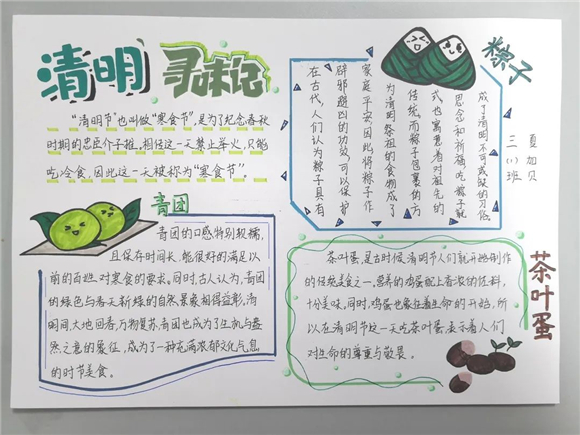 清明 寻味记
"清明节"也叫做"寒食节",是为了纪念春秋
时期的忠臣介子推,相传这一天禁止举火,只能
吃冷食,因此这一天被称为"寒食节"。
青团
青团的口感特别软糯,
且保存时间长,能很好的满足以
前的百姓对寒食的要求。同时,古人认为,青团
的绿色与春天新绿的自然景象相得益彰,清
明间,大地回春,万物复苏,青团也成为了生机与盎
然之意的象征,成为了一种充满浓郁文化气息
的时节美食。
粽子
在古代,人们认为粽子具有
辟邪避凶的功效,可以保护
家庭平安,因此将粽子作
为清明祭祖的食物成了
传统,而粽子包裹的方
式也寓意着对祖先的
思念和祈祷,吃粽子就
成了清明不可或缺的习俗。
三(1)班
夏加贝
茶叶蛋
茶叶蛋,是古时候清明节人们就开始制作
的传统美食之一,营养的鸡蛋配上香浓的佐料,
十分美味,同时,鸡蛋也象征着生命的开始,所
以在清明节这一天吃茶叶蛋表示着人们
对生命的尊重与敬畏。